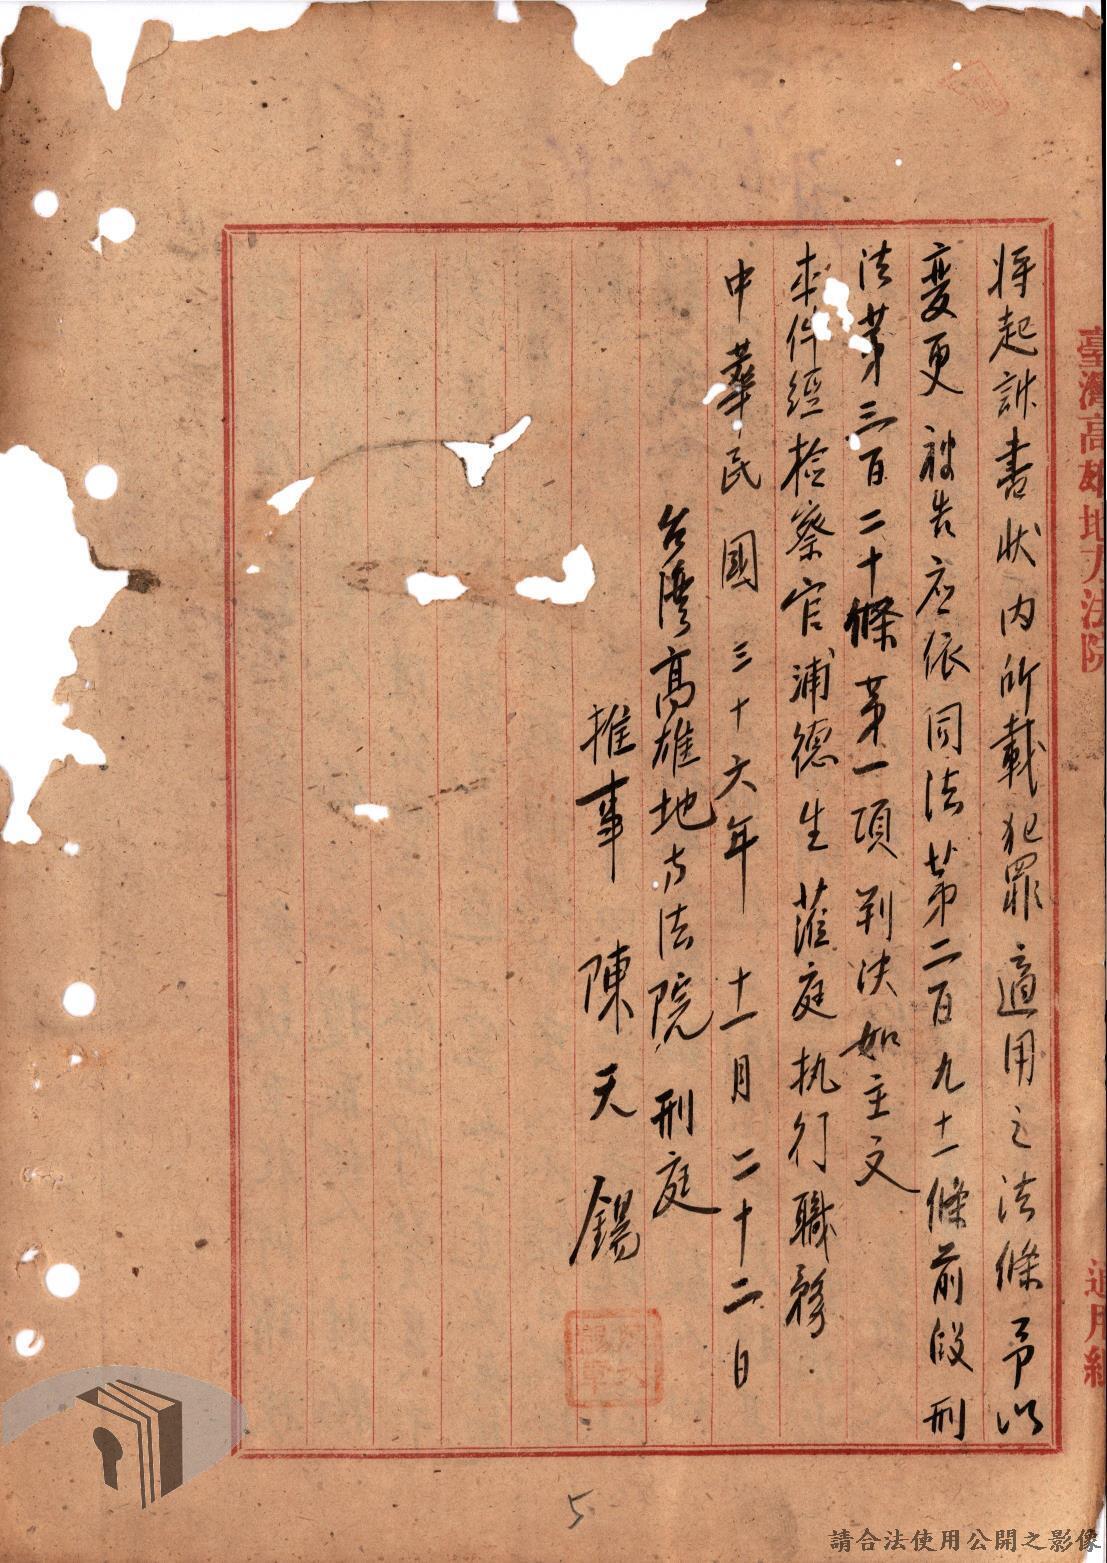 臺灣高雄地方法院
將起訴書狀內所載犯罪適用之法條予以
変更被告应依同法第二百九十一條前段刑
法第三百二十條第一項判決如主文
本件經檢察官浦德生蒞庭执行職務
中華民國三十六年十一月二十二日
台灣高雄地方法院刑庭
推事陳天錫
5
請合法使用公開之影像